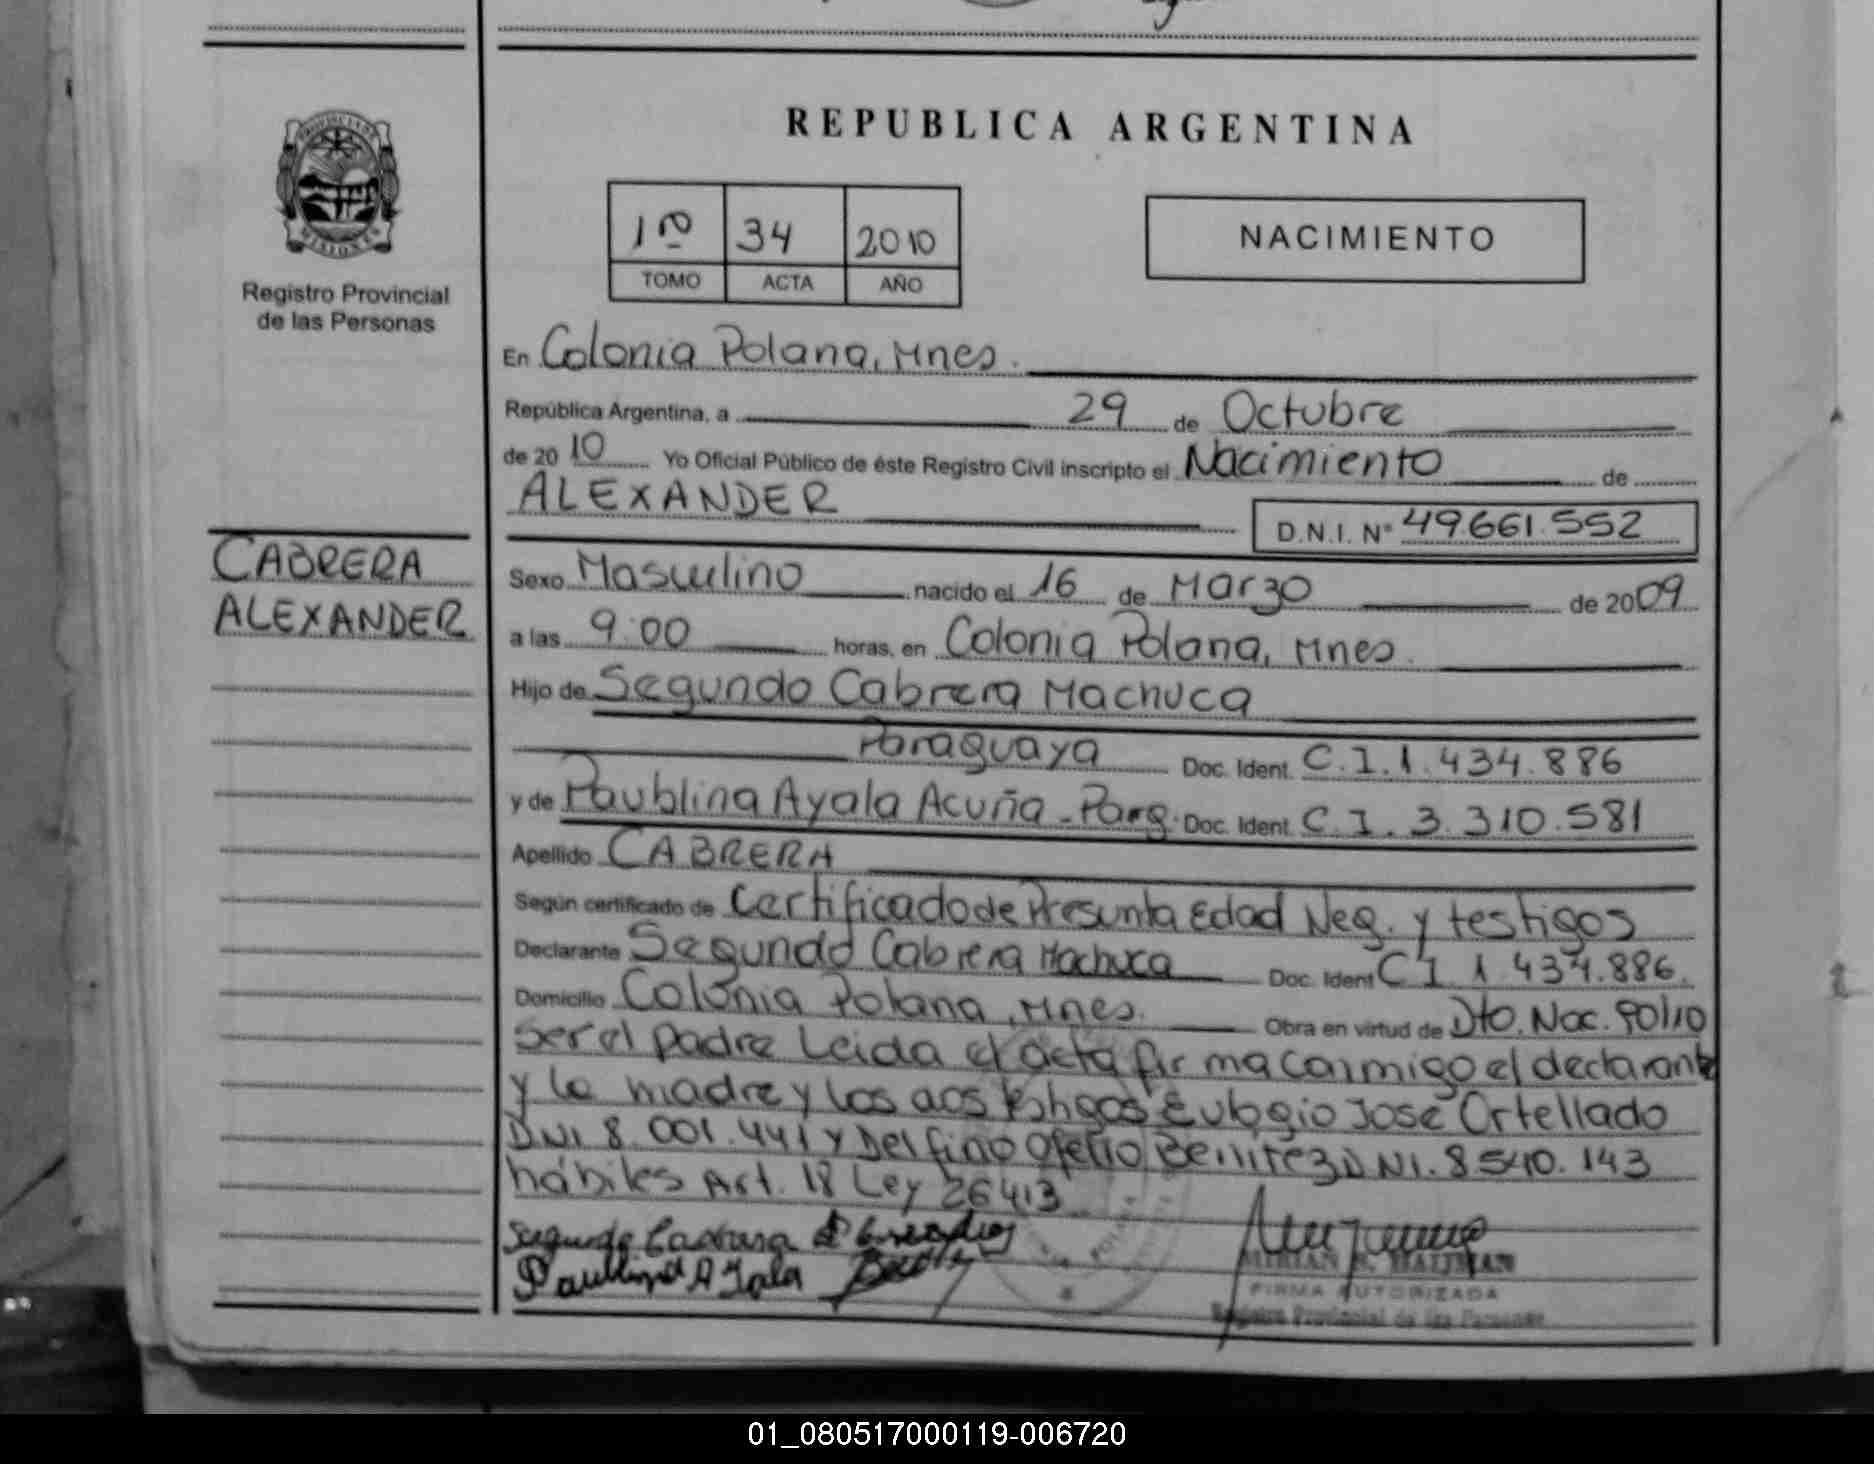 REPUBLICA ARGENTINA
PROVINCIA DE MISIONES
Registro Provincial
de las Personas
1ro 34 2010
TOMO ACTA AÑO
NACIMIENTO
En Colonia Polana, Mnes.
República Argentina, a 29 de Octubre
de 2010 Yo Oficial Público de éste Registro Civil inscripto el Nacimiento de
ALEXANDER
D.N.I. Nº 49.661.552
CABRERA
ALEXANDER
Sexo Masculino nacido el 16 de Marzo de 2009
a las 9:00 horas, en Colonia Polana, Mnes.
Hijo de Segundo Cabrera Machuca
Paraguaya Doc. Ident. C.I. 1.434.886
y de Paublina Ayala Acuña - Parg. Doc. Ident. C.I. 3.310.581
Apellido CABRERA
Según certificado de Certificado de Presunta Edad Neg. y testigos
Declarante Segundo Cabrera Machuca Doc. Ident C I 1.434.886.
Domicilio Colonia Polana, Mnes. Obra en virtud de Dto. Nac. 90/10
Ser el padre Leida el acta firma conmigo el declarante
y la madre y los dos testigos Eulogio José Ortellado
DNI 8.001.441 y Delfino Ofelio Benitez DNI. 8.540.143
hábiles Art. 18 Ley 26413
Segundo Cabrera
Paublina Ayala
FIRMA AUTORIZADA
Registro Provincial de las Personas
01_080517000119-006720